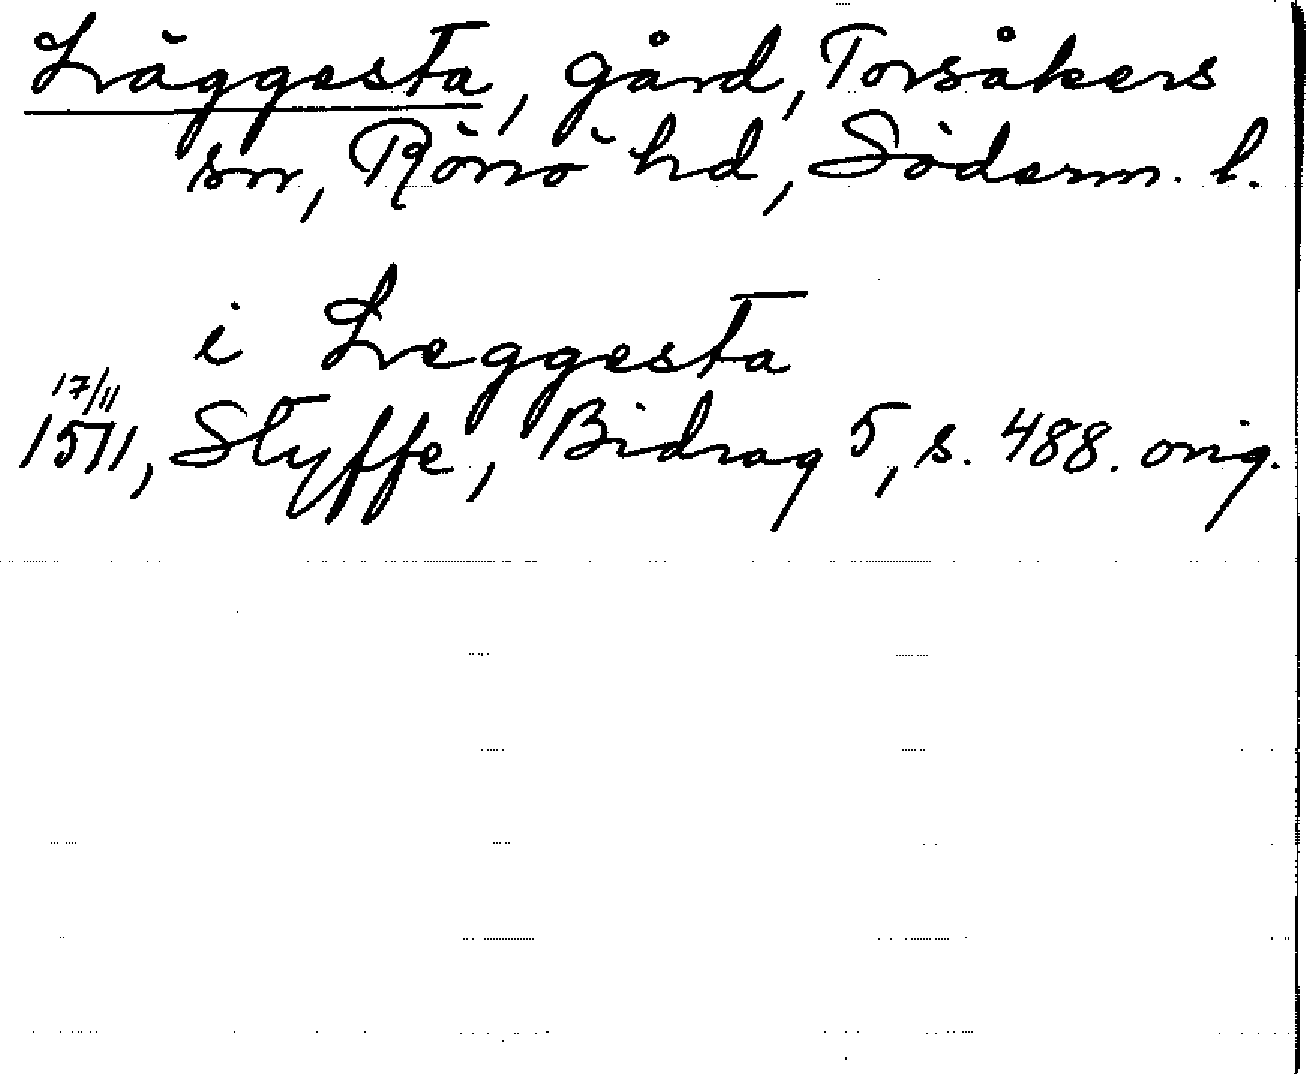 Läggesta, gård, Torsåkers
sn, Rönö hd, Söderm. l.
i Leggesta
17/11
1511, Styffe, Bidrag 5, s. 488. orig.